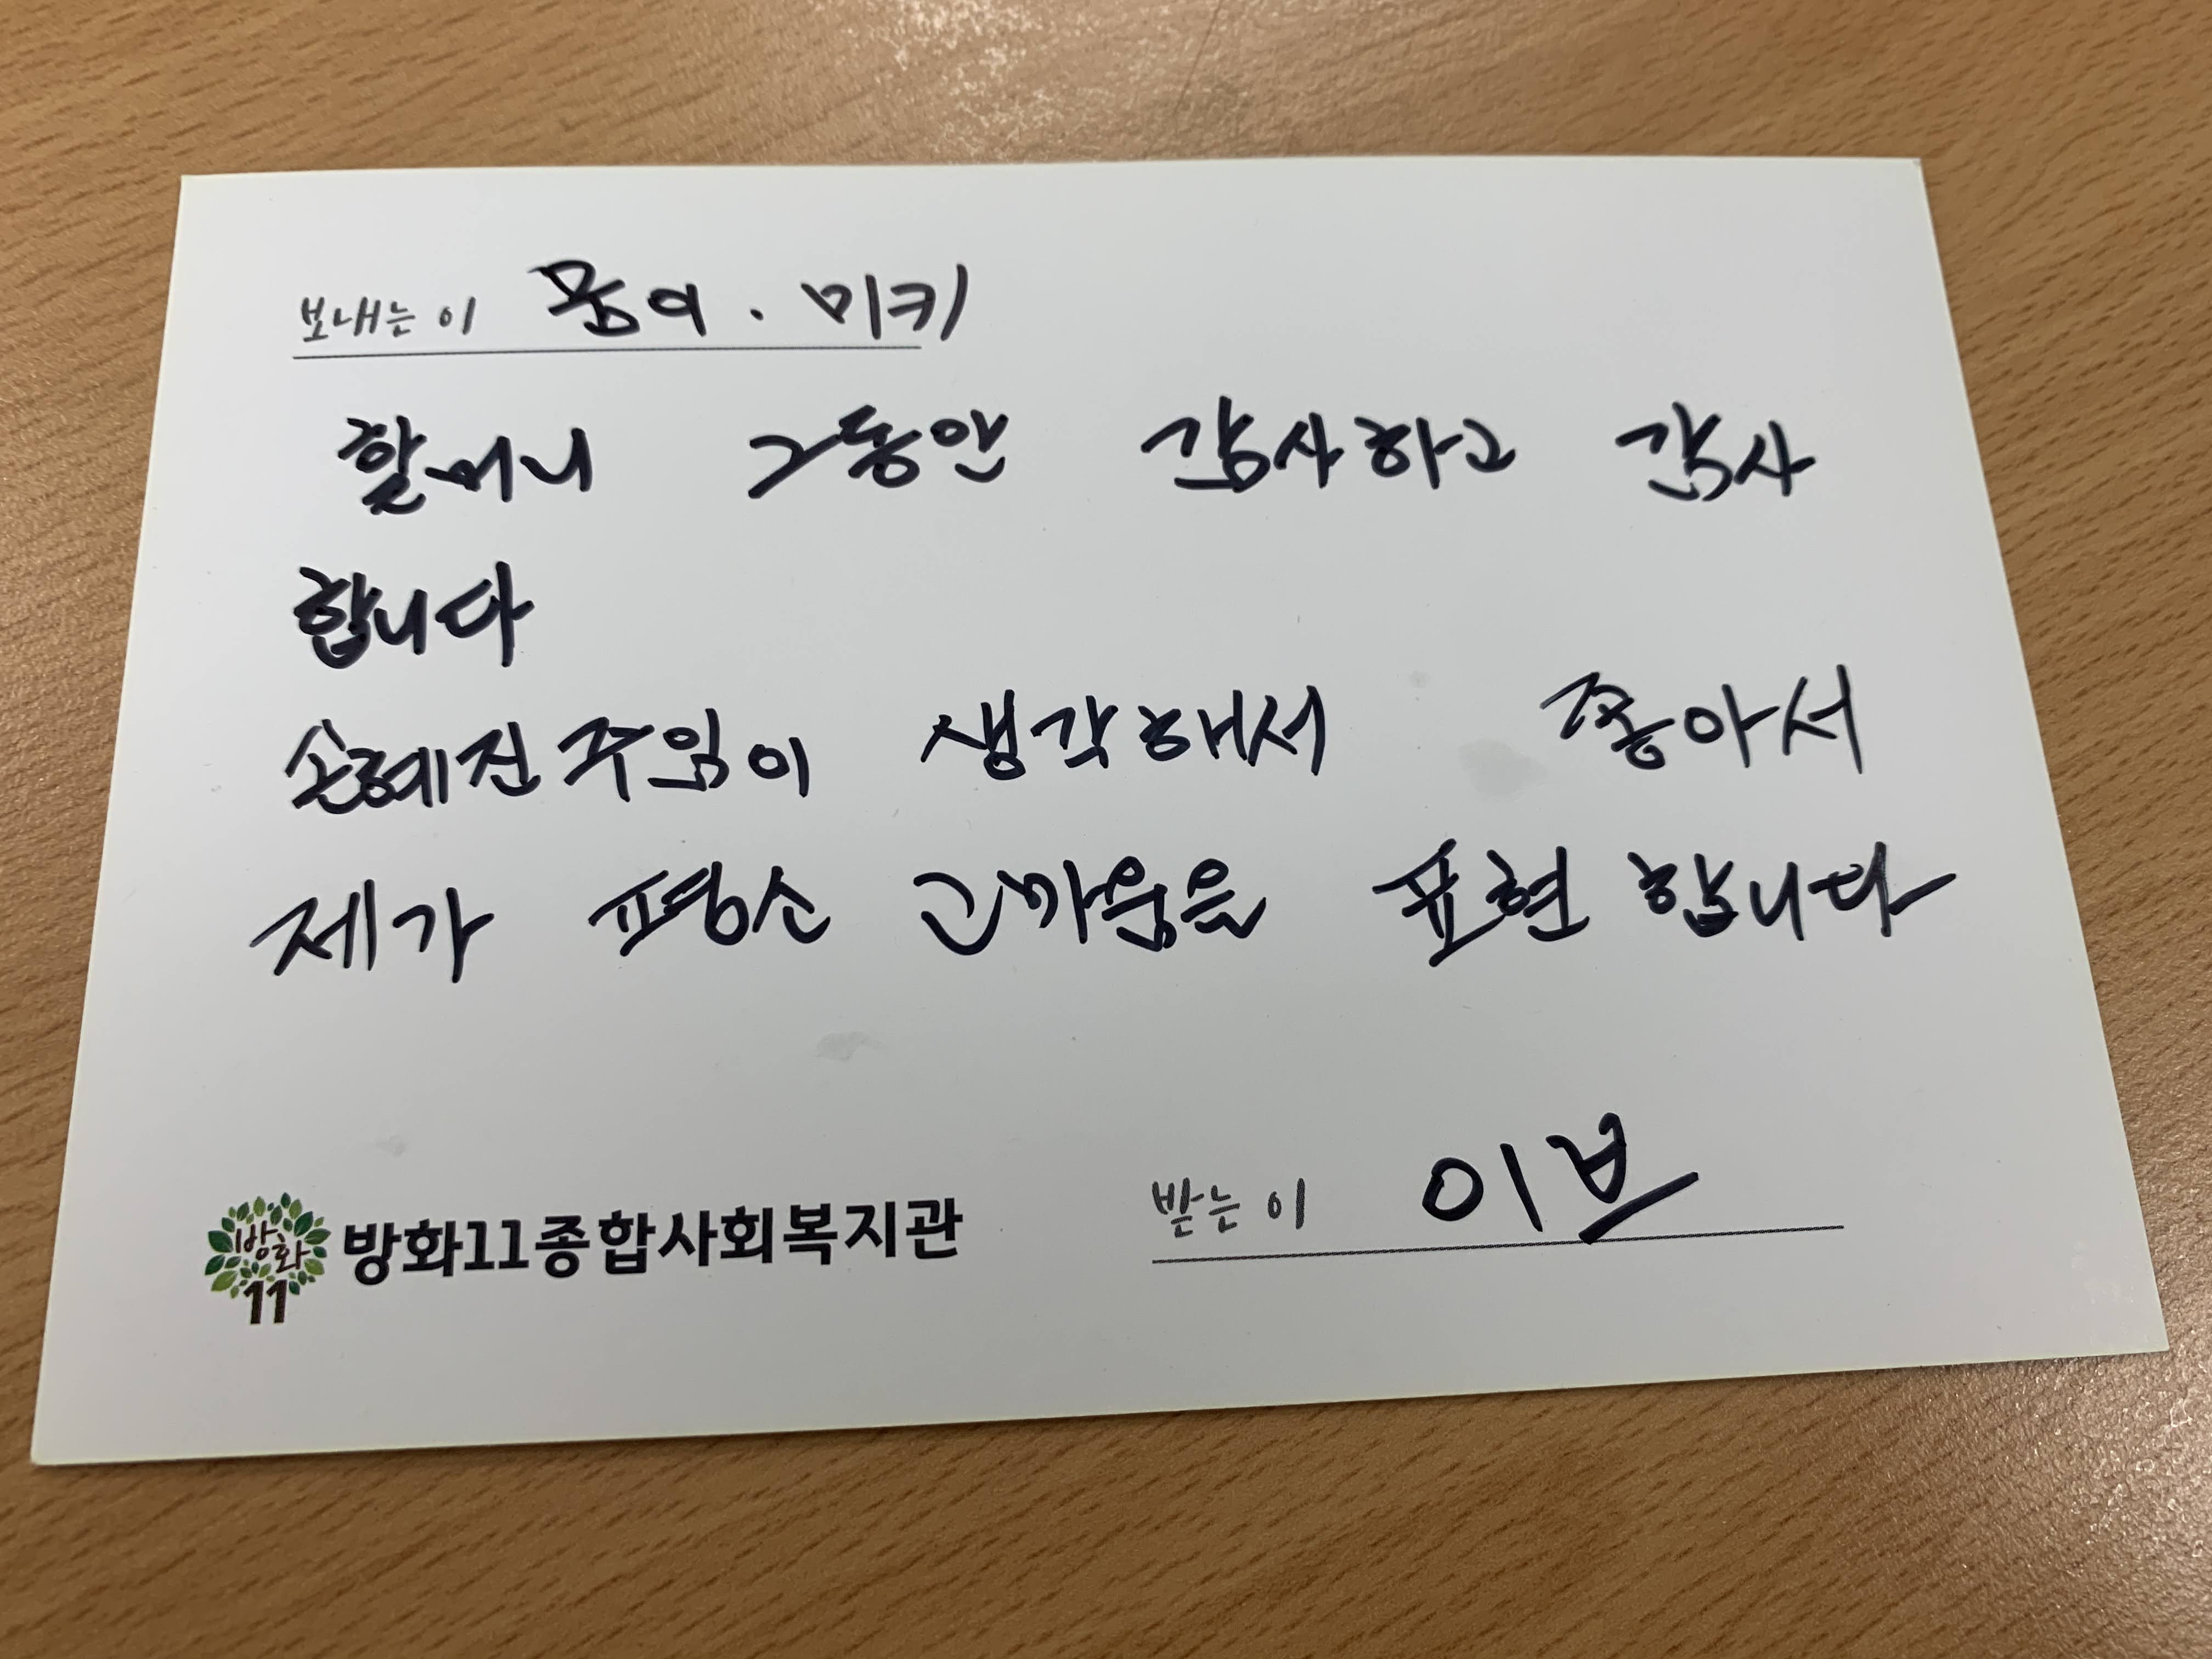 보내는 이 뭉이 . 미키
할머니 그동안 감사하고 감사
합니다
손혜진 주임이 생각해서 좋아서
제가 평소 고마움을 표현 합니다
받는 이 이브
방화11종합사회복지관
방화
11